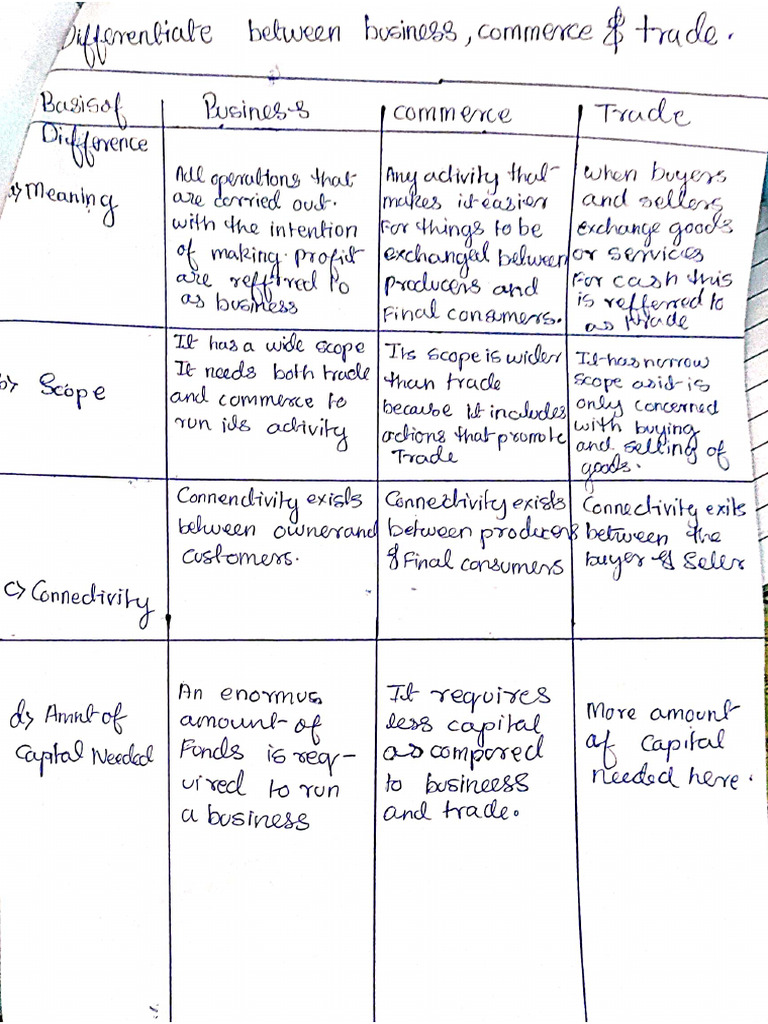 Differentiate between business, commerce & trade.
Basis of Difference
Business
commerce
Trade
a) Meaning
All operations that
are carried out
with the intention
of making profit
are reffired to
as business
Any activity that
makes it easier
For things to be
exchanged between
producers and
Final consumers.
when buyers
and sellers
exchange goods
or services
For cash this
is refferred to
as trade
b) Scope
It has a wide scope
It needs both trade
and commerce to
run its activity
Its scope is wider
than trade
because it includes
actions that promote
Trade
It has norrow
scope as it is
only concerned
with buying
and selling of
goods.
c) Connectivity
Connendivity exists
between owner and
customers.
Connectivity exists
between producers
& Final consumers
Connectivity exits
between the
buyer & Seler
d) Amnt of
Capital Needed
An enormus
amount of
Funds is req-
uired to run
a business
It requires
less capital
as compared
to busineess
and trade.
More amount
of Capital
needed here.